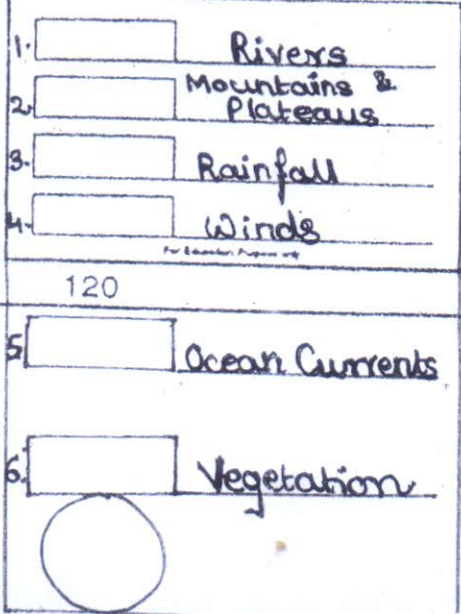 1. Rivers
2. Mountains &
Plateaus
3. Rainfall
4. Winds
For Education Purpose only
120
5. Ocean Currents
6. Vegetation